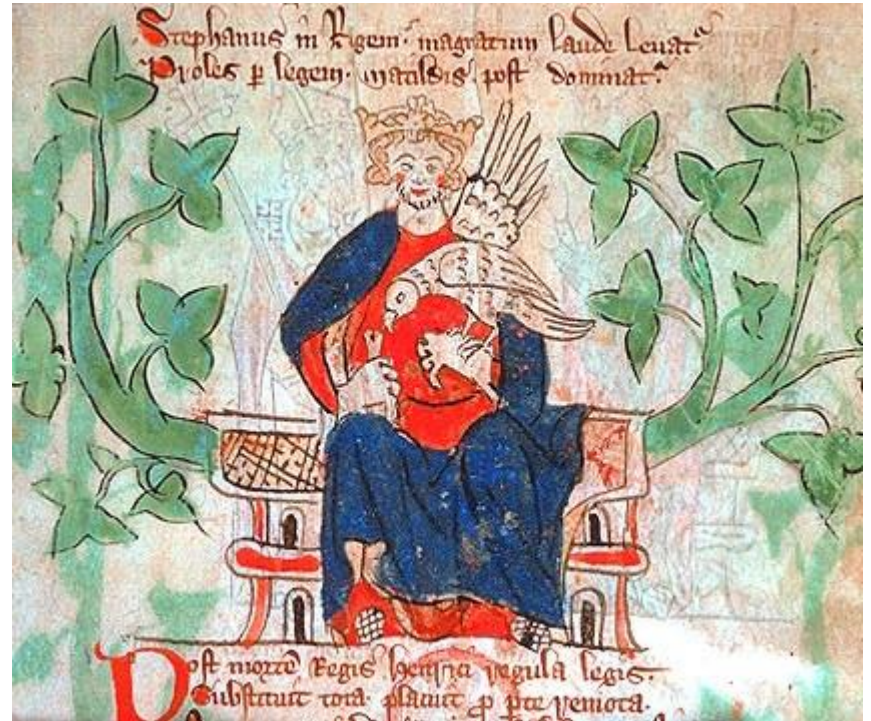 Stephanus in Regem· magnatum laude levat᷒
Proles p̱ legem· matildis· post dominat᷒
Post mortē Regis henrici regula legis·
Substituit tota· placuit p̱ pte remota·